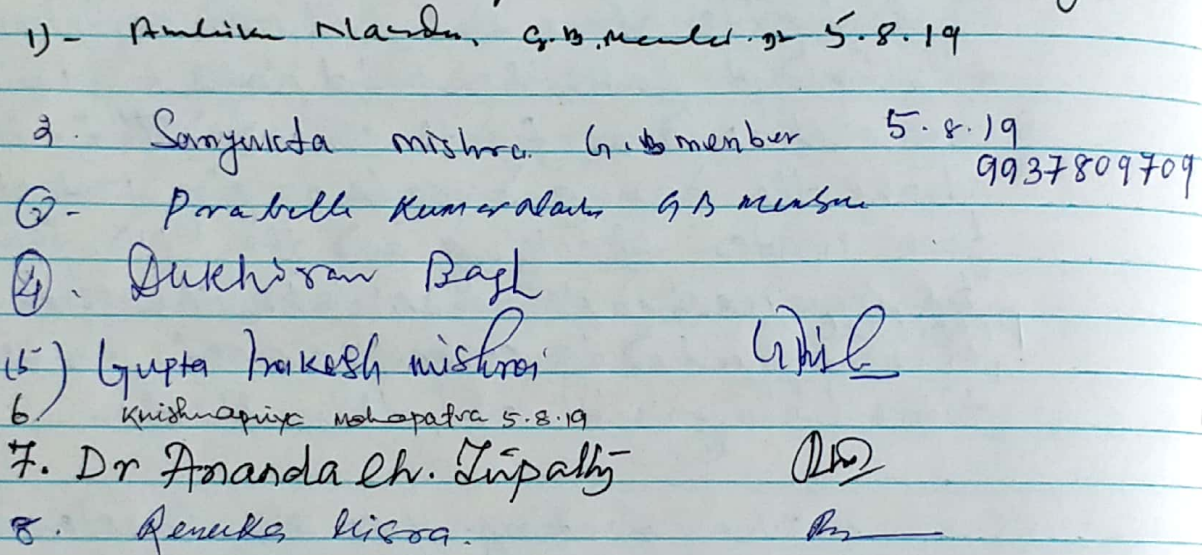 1) - Ambika Nanda, G.B. Member 5.8.19
2. Sanyukta mishra G.B member 5.8.19
9937809709
3 - Parabella Kumar GB member
4. Dukhiram Bagh
(5) Gupta Prakash mishra
6. Krishnapriya Mohapatra 5.8.19
7. Dr Ananda Ch. Tripathy
8. Renuka Misra.